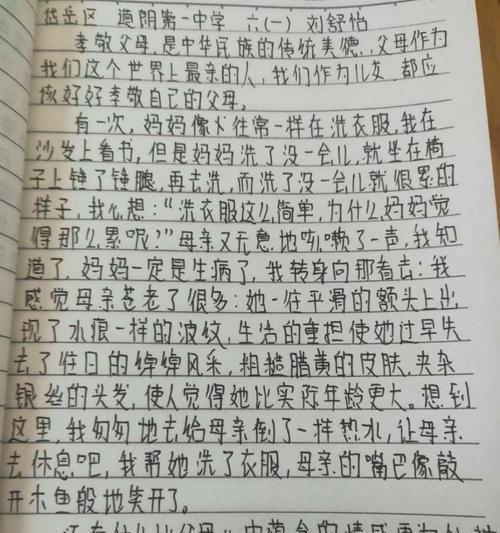 岱岳区 道朗第一中学 六(一) 刘舒怡
孝敬父母,是中华民族的传统美德,父母作为
我们这个世界上最亲的人,我们作为儿女 都应
该好好孝敬自己的父母。
有一次,妈妈像以往常一样在洗衣服,我在
沙发上看书,但是妈妈洗了没一会儿,就坐在椅
子上锤了锤腿,再去洗,而洗了没一会儿就很累的
样子,我心想:“洗衣服这么简单,为什么妈妈觉
得那么累呢?”母亲又无意地咳嗽了一声,我知
道了,妈妈一定是生病了,我转身向那看去:我
感觉母亲苍老了很多:她一往平滑的额头上出
现了水痕一样的波纹,生活的重担使她过早失
去了往日的绰绰风采,粗糙腊黄的皮肤,夹杂
银丝的头发,使人觉得她比实际年龄更大。想到
这里,我匆匆地去给母亲倒了一样热水,让母亲
去休息吧,我帮她洗了衣服,母亲的嘴巴像敲
开木鱼般地笑开了。
还有什么比父母